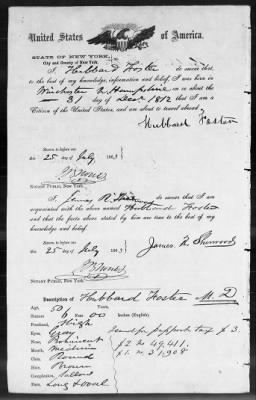 United States of America.
STATE OF NEW YORK,
City and County of New York.
I, Hubbard Foster do swear that,
to the best of my knowledge, information and belief, I was born in
Winchester N. Hampshire on or about the
31 day of Decr 1812 that I am a
Citizen of the United States, and am about to travel abroad.
Hubbard Foster
Sworn to before me
this
25 day of July 1863
NOTARY PUBLIC, New York.
I, James do swear that I am
acquainted with the above named Hubbard Foster
and that the facts above stated by him are true to the best of my
knowledge and belief.
Sworn to before me
this
25 day of July 1863
James. Sherwood
NOTARY PUBLIC, New York.
Description of Hubbard Foster M. D
Age, 50
Stature, 6 Feet 00 Inches (English).
Forehead, High
Eyes, Gray
Nose, Prominent
Mouth, Medium
Chin, Round
Hair, Brown
Complexion,
Face, Long & oval
Send for support tax $3.
$2 No 49.411
$1. No 31,908